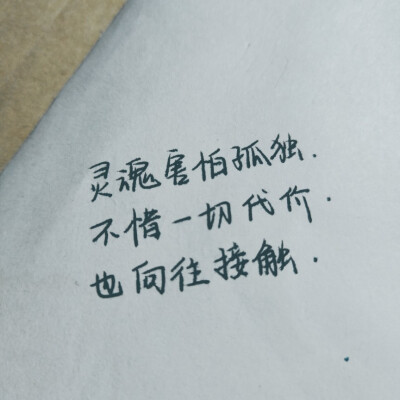 灵魂害怕孤独.
不惜一切代价.
也向往接触.